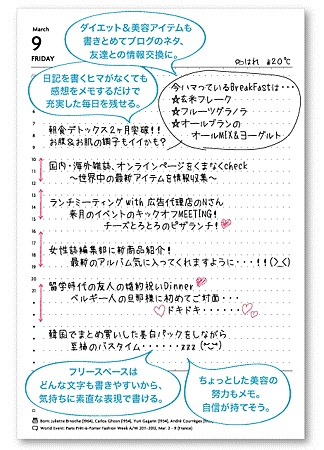 March
9
FRIDAY
ダイエット＆美容アイテムも
書きとめてブログのネタ、
友達との情報交換に。
のはれ 20℃
日記を書くヒマがなくても
感想をメモするだけで
充実した毎日を残せる。
今ハマっているBreakFastは・・・
☆玄米フレーク
☆フルーツグラノラ
☆オールブランの
オールMIX＆ヨーグルト
朝食デトックス2ヶ月突破!!
お腹＆お肌の調子もイイかも?
国内・海外雑誌、オンラインページをくまなくcheck
〜世界中の最新アイテムを情報収集〜
ランチミーティング with 広告代理店のNさん
来月のイベントのキックオフMEETING!
チーズとろとろのピザランチ!
女性誌編集部に新商品紹介!
最新のアルバム気に入ってくれますように・・・!!(>_<)
留学時代の友人の婚約祝いDinner
ベルギー人の旦那様に初めてご対面・・・
ドキドキ・・・・・・
韓国でまとめ買いした美白パックをしながら
至福のバスタイム・・・・・・zzz
フリースペースは
どんな文字も書きやすいから、
気持ちに素直な表現で書ける。
ちょっとした美容の
努力もメモ。
自信が持てそう。
Born: Juliette Binoche (1964), Carlos Ghosn (1954), Yuri Gagarin (1934), André Courrèges
World Event: Paris Prêt-à-Porter Fashion Week A/W 2011-2012, Mar. 2 - 9 (France)